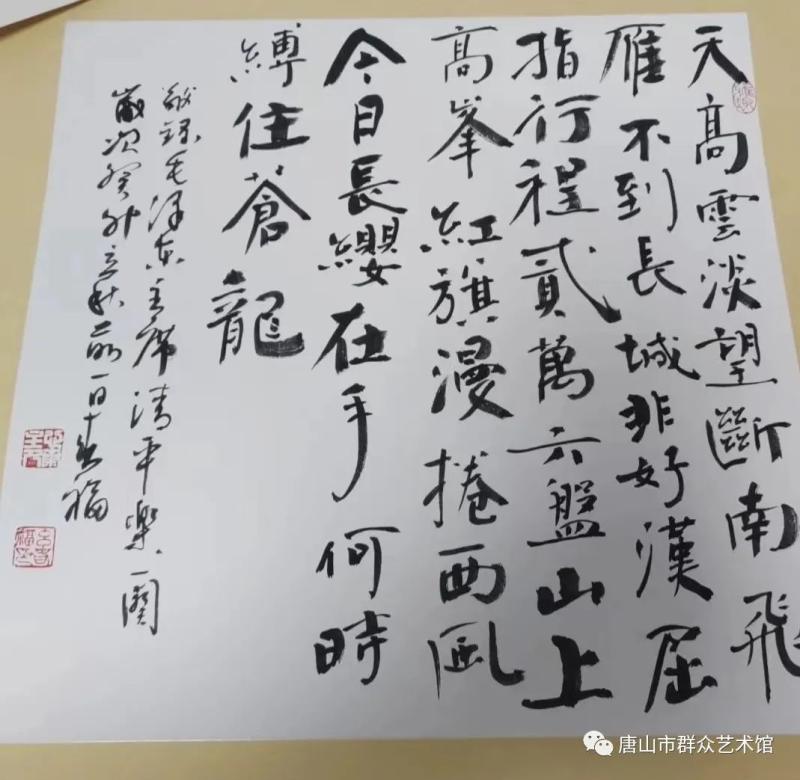 天高雲淡望斷南飛
雁不到長城非好漢屈
指行程貳萬六盤山上
高峯紅旗漫捲西風
今日長纓在手何時
縛住蒼龍
敬錄毛澤東主席清平樂一闋
歲次癸卯立秋前一日於福
唐山市群众艺术馆